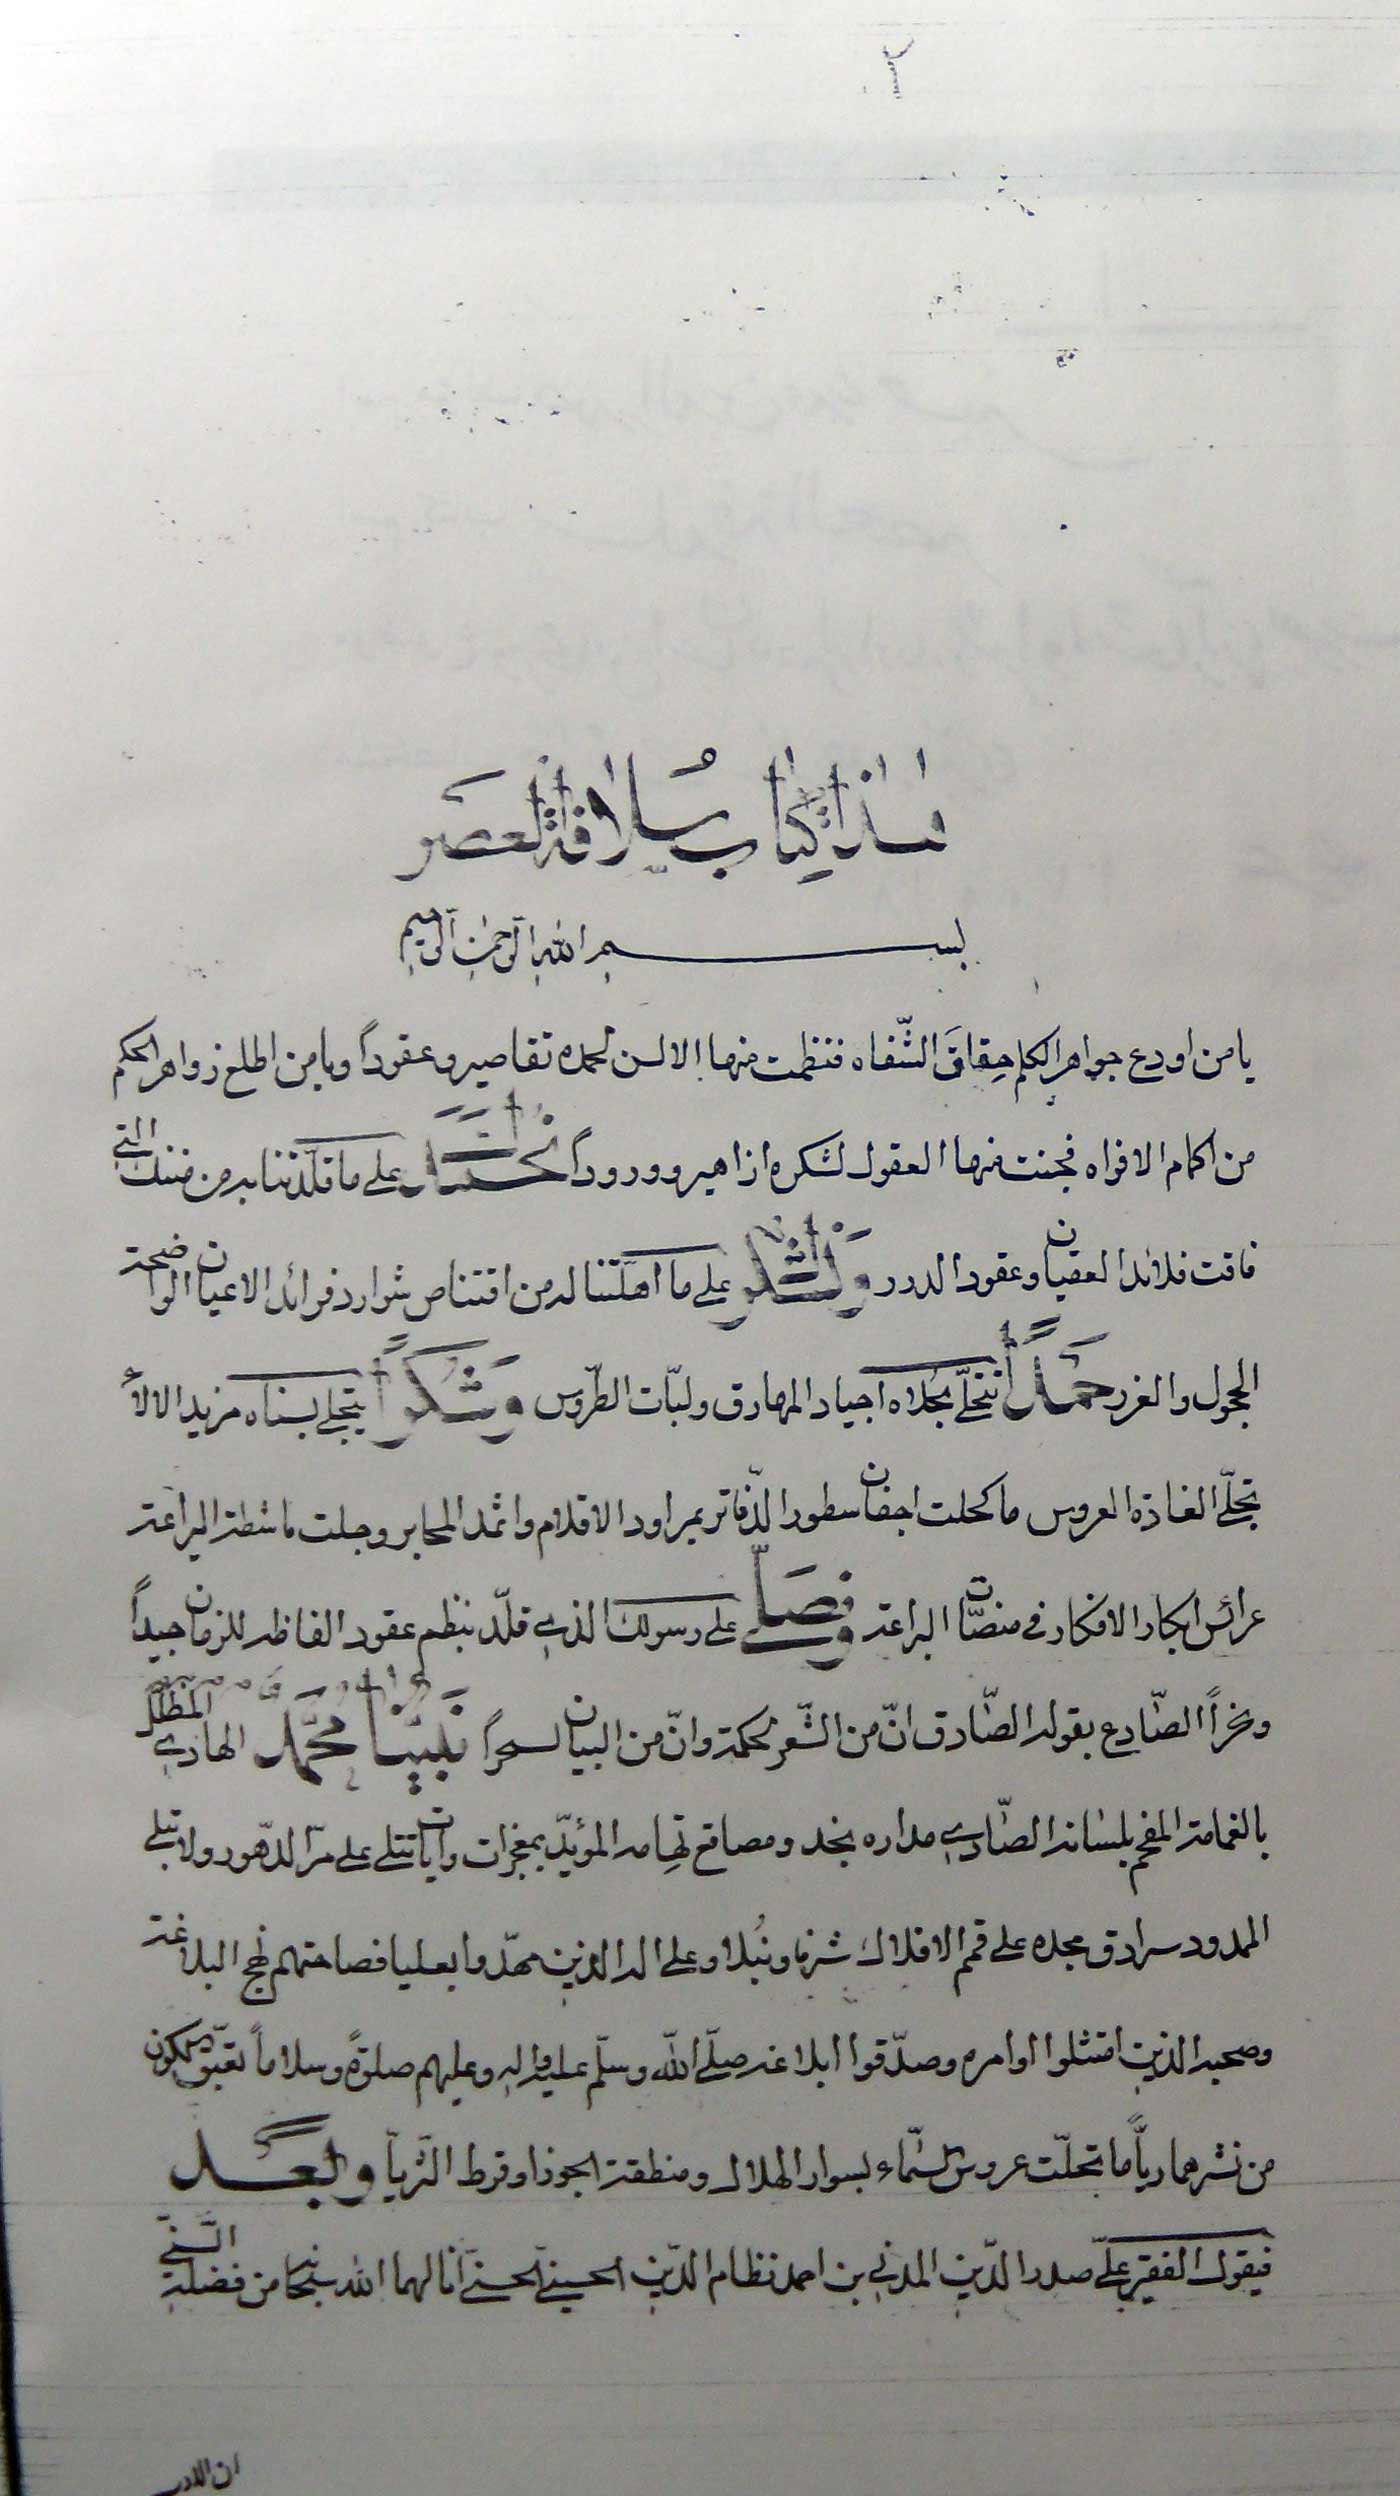 ٢
هذا كتاب سلافة العصر
بسم الله الرحمن الرحيم
يا من اودع جواهر الكلم حِقاقَ الشّفاه فنظمت منها الالسن لحمده تقاصير وعقوداً ويا من اطلع زواهر الحكم
من اكمام الافواه فجنت منها العقول لشكره ازاهير ووروداً نحمدك على ما قلّدتنا به من مننك التى
فاقت قلائد العقيان وعقود الدرر ونشكرك على ما اهلّتنا له من اقتناص شوارد فرائد الاعيان الواضحة
الحجول والغرر حمداً تتحلّى بحُلاه اجياد المهارق ولبّات الطّروس وشكراً يتجلى بسناه مزيد الالاء
تجلّى الغادة العروس ما كحلت اجفان سطور الدّفاتر بمراود الاقلام واثمد المحابر وجلت ماشطة اليراعة
عرائس ابكار الافكار فى منصّات البراعة ونصلّى على رسولك الذى قلّد بنظم عقود الفاظه للزمان جيداً
ونحراً الصّادع بقوله الصّادق انّ من الشّعر لحكمة وانّ من البيان لسحراً نبيّنا محمّد الهادى المظلّل
بالغمامة المفحم بلسانه الصّادى مداره نجد ومصاقع تهامة المؤيّد بمعجزات وآيات تتلى على مرّ الدّهور ولا تبلى
الممدود سرادق مجده على قمم الافلاك شرفا ونُبلا وعلى اله الذين مهّدوا بعليا فصاحتهم نهج البلاغة
وصحبه الذين امتثلوا اوامره وصدّقوا ابلاغه صلّى الله وسلّم عليه واله وعليهم صلوةً وسلاماً يعبّق الكون
من نشرهما ريّاً ما تحلّت عروس السّماء بسوار الهلال ومنطقة الجوزا وقرط الثّريّا وبعد
فيقول الفقير علىّ صدر الدّين المدنى بن احمد نظام الدّين الحسينى الحسنى انالهما الله سبحانه من فضله السّنىّ